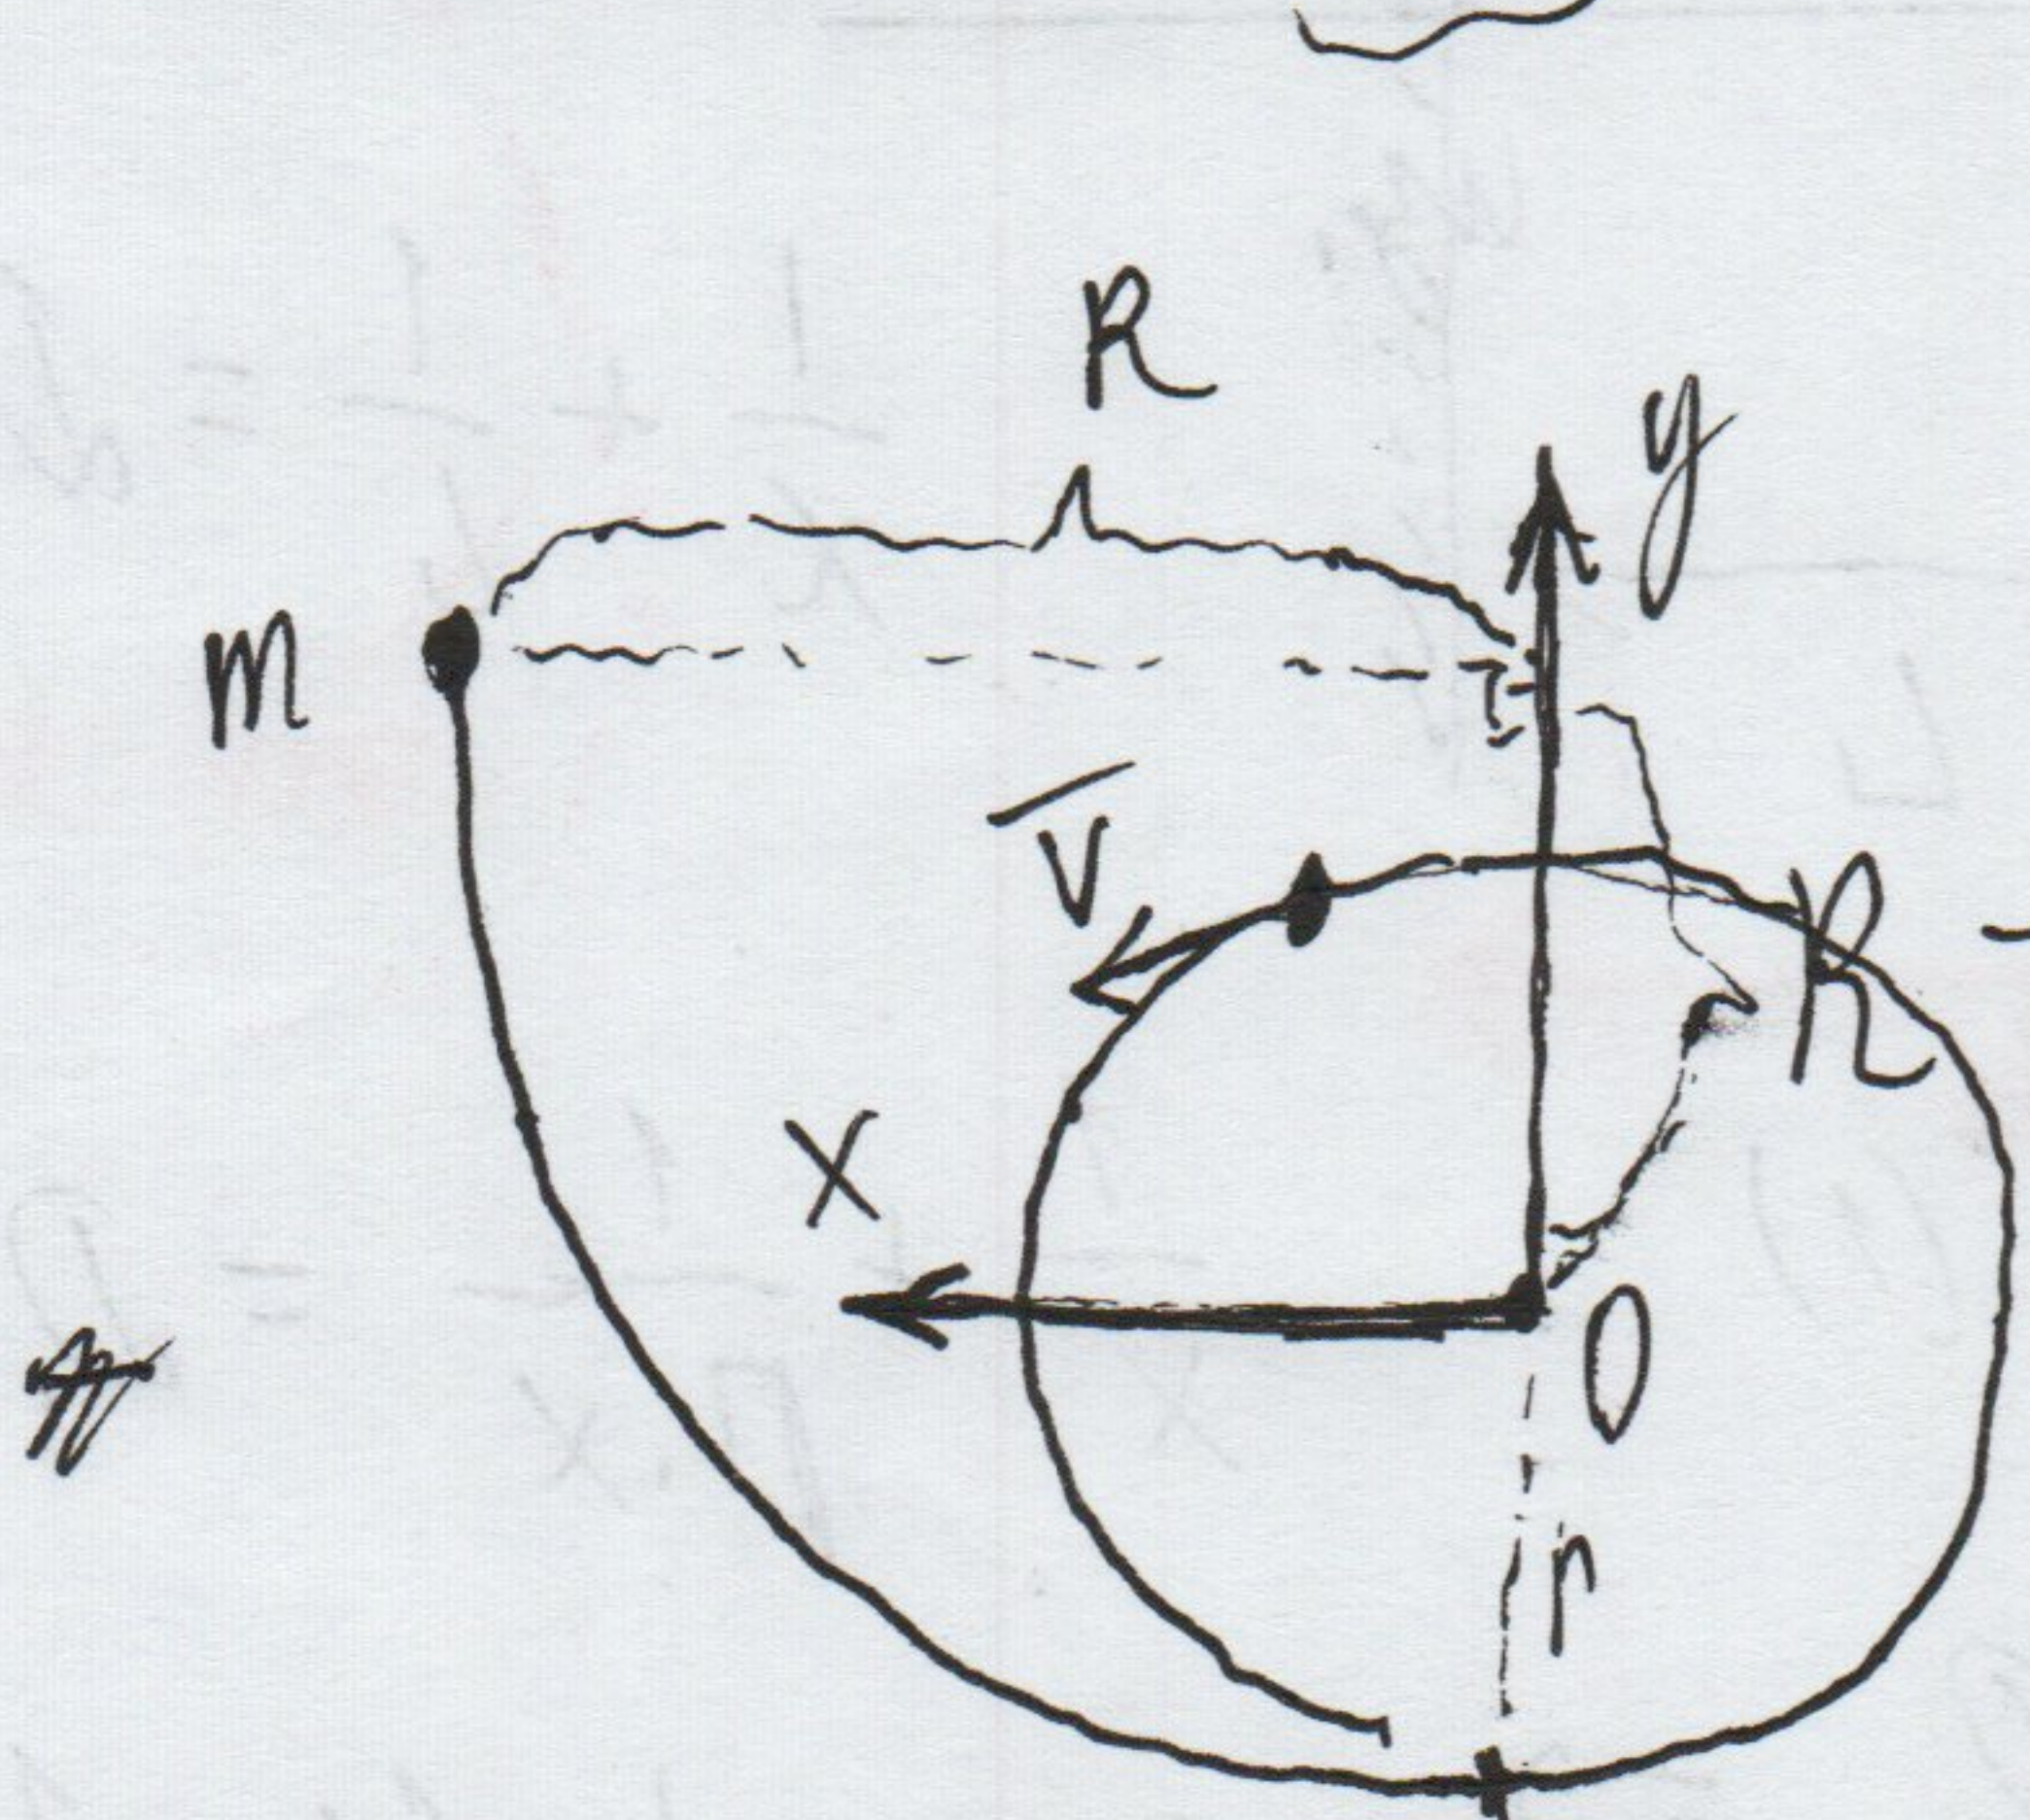 R
y
m
V
R
X
O
r